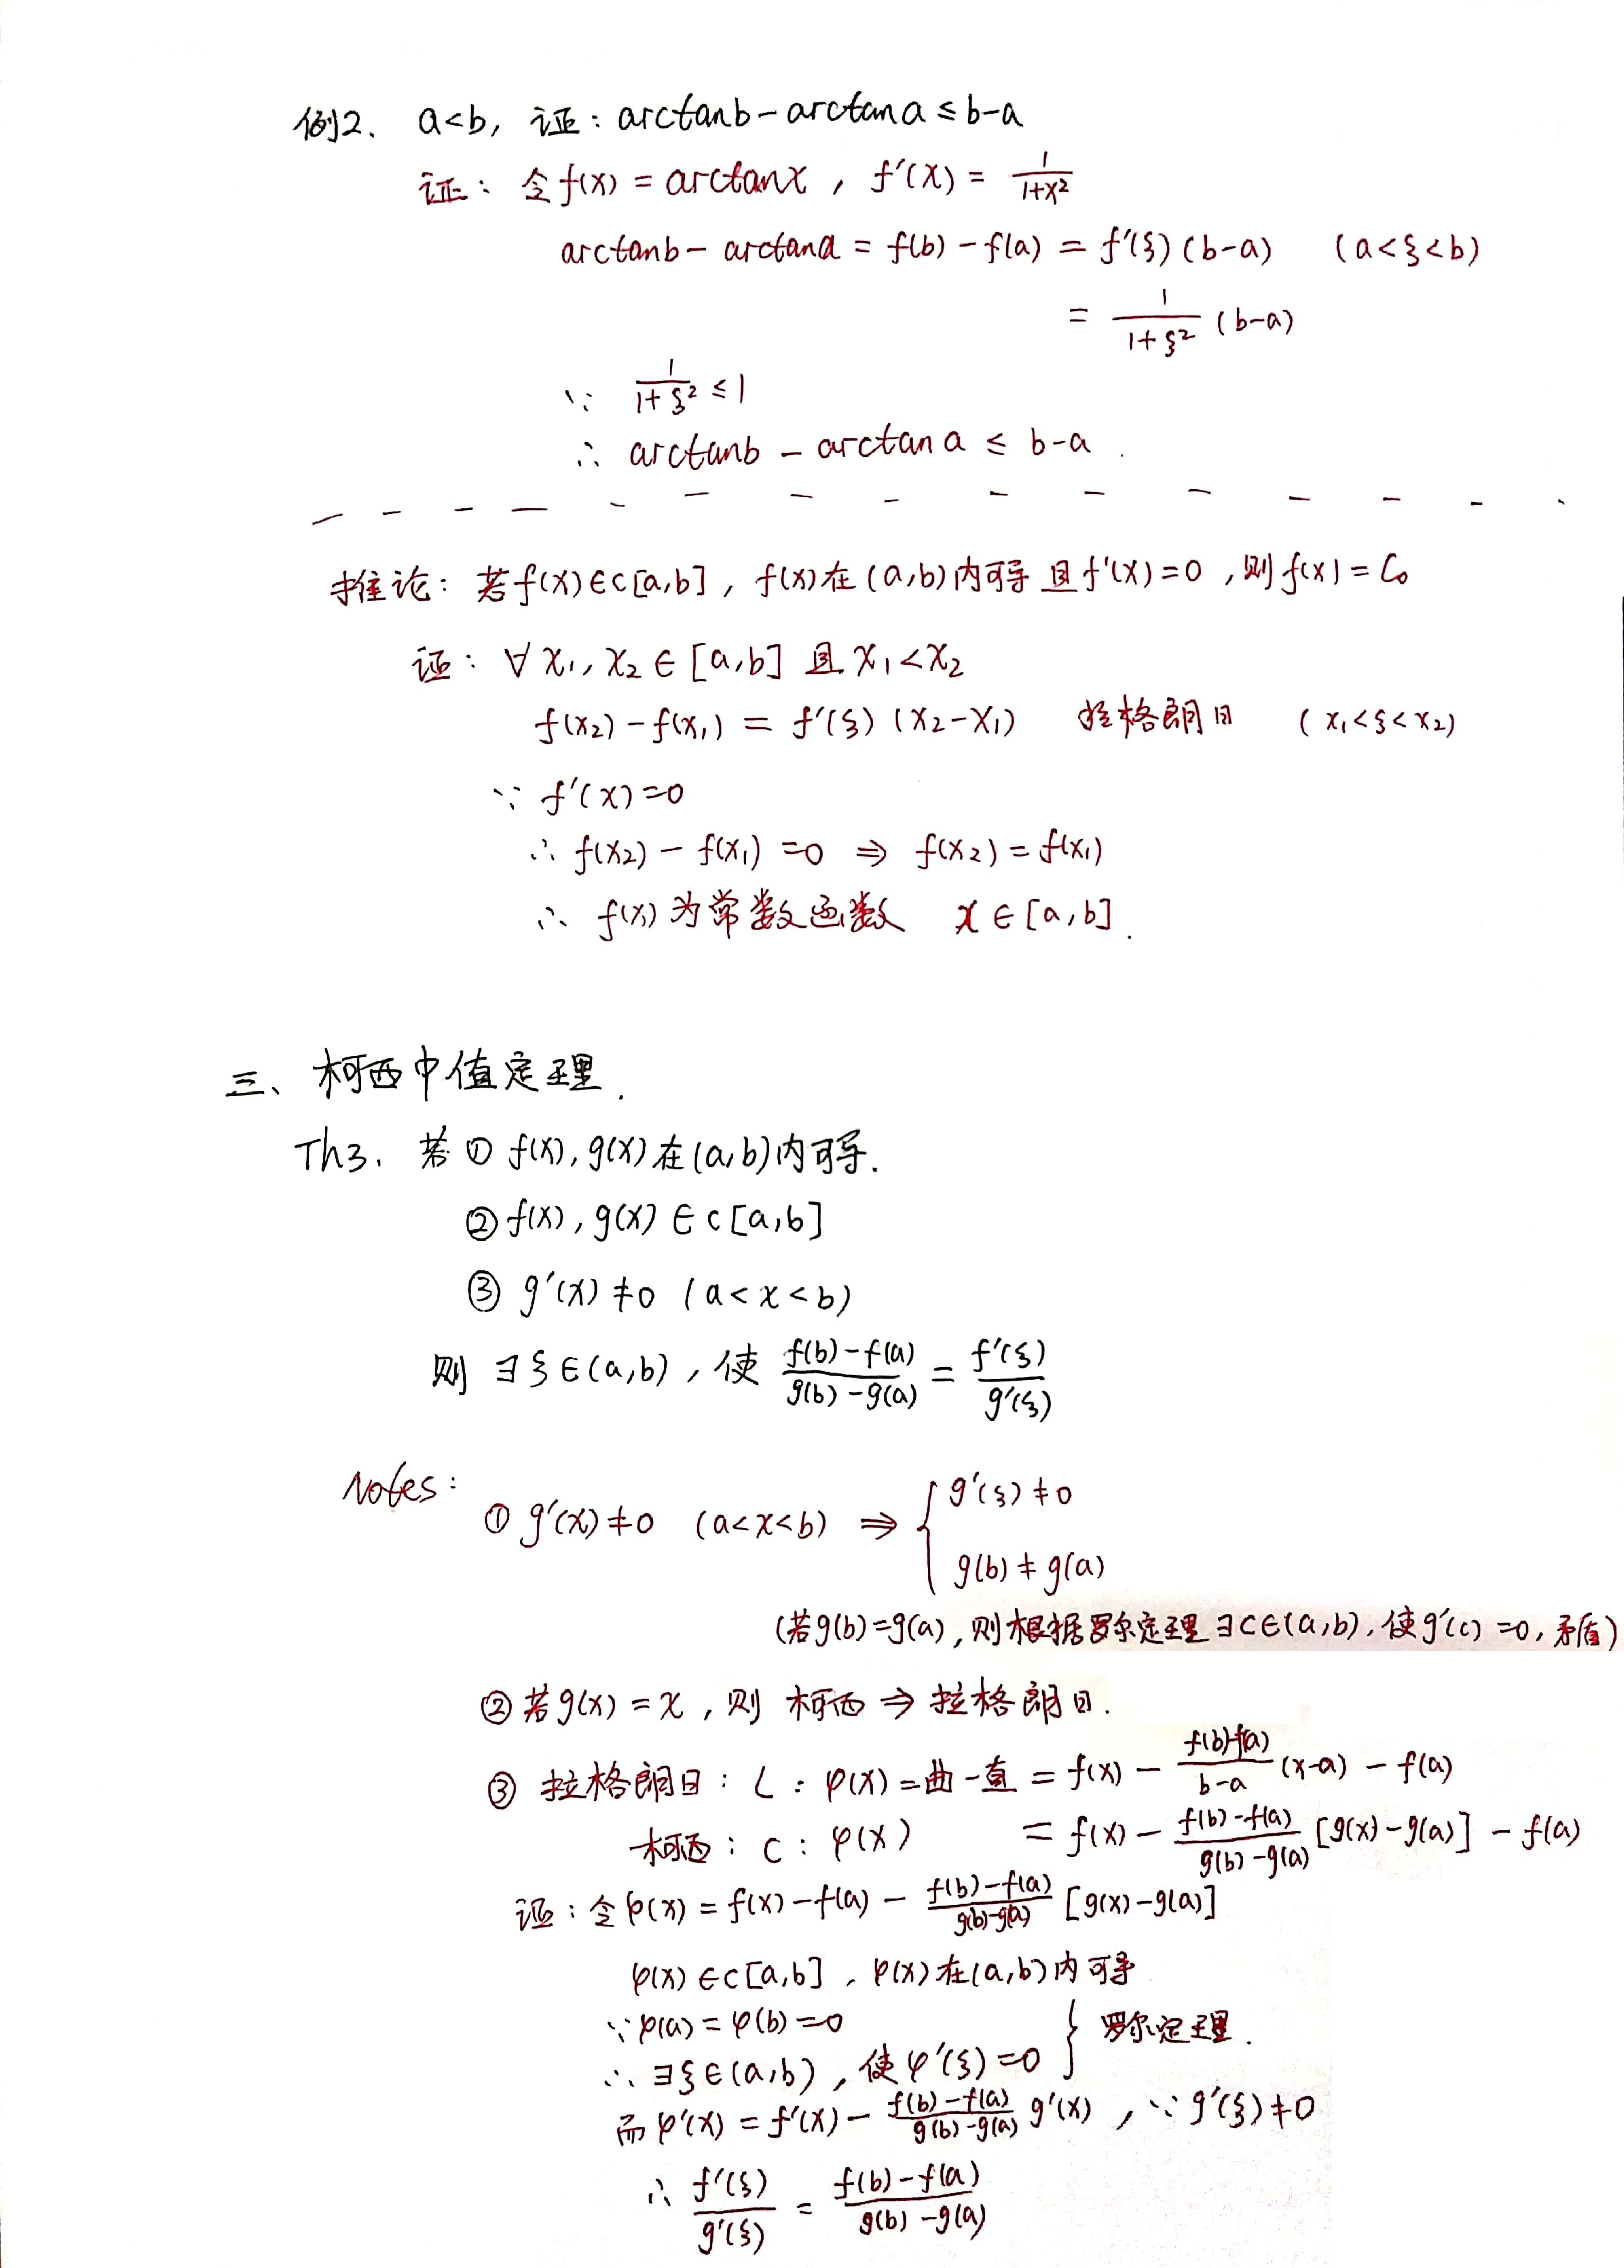 例2. a<b, 证: arctanb-arctana≤b-a
证: 令f(x)=arctanx, f'(x)=1/(1+x²)
arctanb-arctana=f(b)-f(a)=f'(ξ)(b-a) (a<ξ<b)
=1/(1+ξ²)(b-a)
∵ 1/(1+ξ²)≤1
∴ arctanb-arctana≤b-a.
推论: 若f(x)∈C[a,b], f(x)在(a,b)内可导且f'(x)=0, 则f(x)=C₀
证: ∀x₁,x₂∈[a,b]且x₁<x₂
f(x₂)-f(x₁)=f'(ξ)(x₂-x₁) 拉格朗日 (x₁<ξ<x₂)
∵ f'(x)=0
∴ f(x₂)-f(x₁)=0 ⇒ f(x₂)=f(x₁)
∴ f(x)为常数函数 x∈[a,b].
三、柯西中值定理.
Th3. 若①f(x),g(x)在(a,b)内可导.
②f(x),g(x)∈C[a,b]
③g'(x)≠0 (a<x<b)
则∃ξ∈(a,b), 使 (f(b)-f(a))/(g(b)-g(a))=f'(ξ)/g'(ξ)
Notes:
①g'(x)≠0 (a<x<b) ⇒ { g'(ξ)≠0
g(b)≠g(a)
(若g(b)=g(a), 则根据罗尔定理∃c∈(a,b), 使g'(c)=0, 矛盾)
②若g(x)=x, 则柯西⇒拉格朗日.
③拉格朗日: L: φ(x)=曲-直=f(x)-(f(b)-f(a))/(b-a)(x-a)-f(a)
柯西: C: φ(x) =f(x)-(f(b)-f(a))/(g(b)-g(a))[g(x)-g(a)]-f(a)
证: 令φ(x)=f(x)-f(a)-(f(b)-f(a))/(g(b)-g(a))[g(x)-g(a)]
φ(x)∈C[a,b], φ(x)在(a,b)内可导
∵φ(a)=φ(b)=0
∴∃ξ∈(a,b), 使φ'(ξ)=0 } 罗尔定理.
而φ'(x)=f'(x)-(f(b)-f(a))/(g(b)-g(a))g'(x), ∵g'(ξ)≠0
∴ f'(ξ)/g'(ξ)=(f(b)-f(a))/(g(b)-g(a))